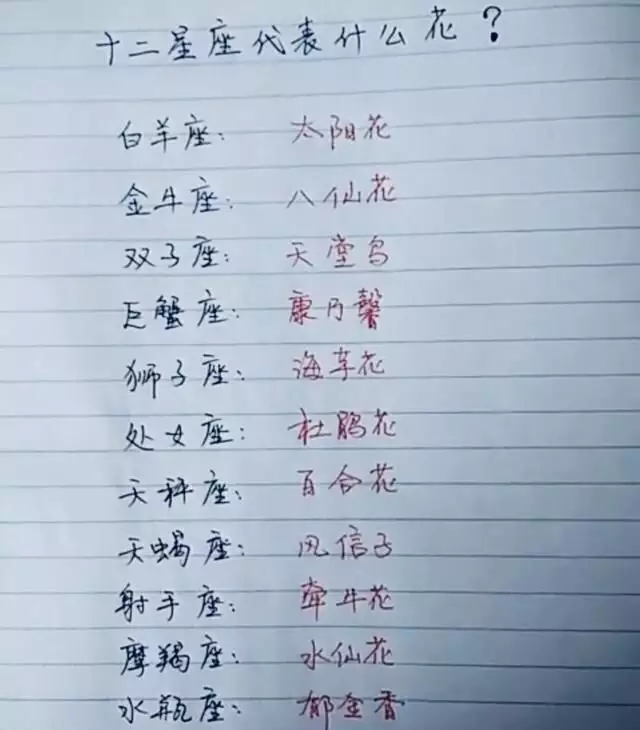 十二星座代表什么花?
白羊座: 太阳花
金牛座: 八仙花
双子座: 天堂鸟
巨蟹座: 康乃馨
狮子座: 海芋花
处女座: 杜鹃花
天秤座: 百合花
天蝎座: 风信子
射手座: 牵牛花
摩羯座: 水仙花
水瓶座: 郁金香